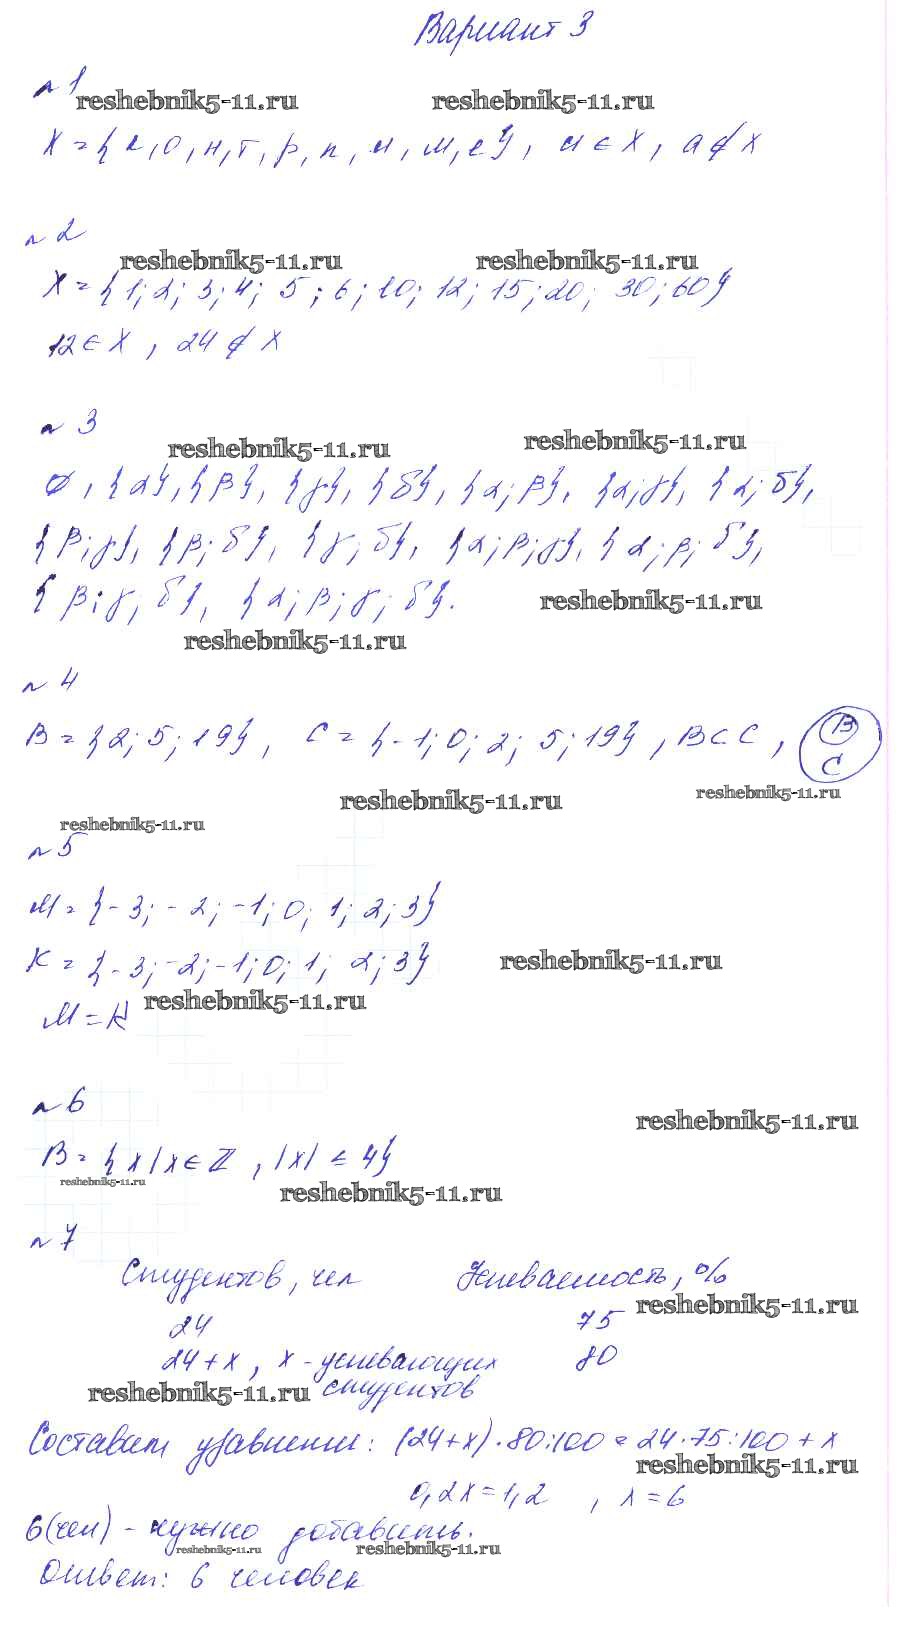 Вариант 3
№ 1
reshebnik5-11.ru reshebnik5-11.ru
X = {к, о, н, т, р, п, и, м, е}, и ∈ X, а ∉ X
№ 2
reshebnik5-11.ru reshebnik5-11.ru
X = {1; 2; 3; 4; 5; 6; 10; 12; 15; 20; 30; 60}
12 ∈ X, 24 ∉ X
№ 3
reshebnik5-11.ru reshebnik5-11.ru
∅, {α}, {β}, {γ}, {δ}, {α; β}, {α; γ}, {α; δ},
{β; γ}, {β; δ}, {γ; δ}, {α; β; γ}, {α; β; δ},
{β; γ; δ}, {α; β; γ; δ}.
reshebnik5-11.ru
reshebnik5-11.ru
№ 4
B = {2; 5; 19}, C = {-1; 0; 2; 5; 19}, B ⊂ C, B
C
reshebnik5-11.ru reshebnik5-11.ru
reshebnik5-11.ru
№ 5
M = {-3; -2; -1; 0; 1; 2; 3}
K = {-3; -2; -1; 0; 1; 2; 3}
reshebnik5-11.ru
reshebnik5-11.ru
M = K
№ 6
reshebnik5-11.ru
B = {x | x ∈ Z, |x| ≤ 4}
reshebnik5-11.ru
reshebnik5-11.ru
№ 7
Студентов, чел Успеваемость, %
reshebnik5-11.ru
24 75
24 + x, x - успевающих 80
студентов
reshebnik5-11.ru
Составим уравнение: (24+x) · 80:100 = 24 · 75:100 + x
reshebnik5-11.ru
0,2x = 1,2, x = 6
6 (чел) - нужно добавить.
reshebnik5-11.ru reshebnik5-11.ru
Ответ: 6 человек